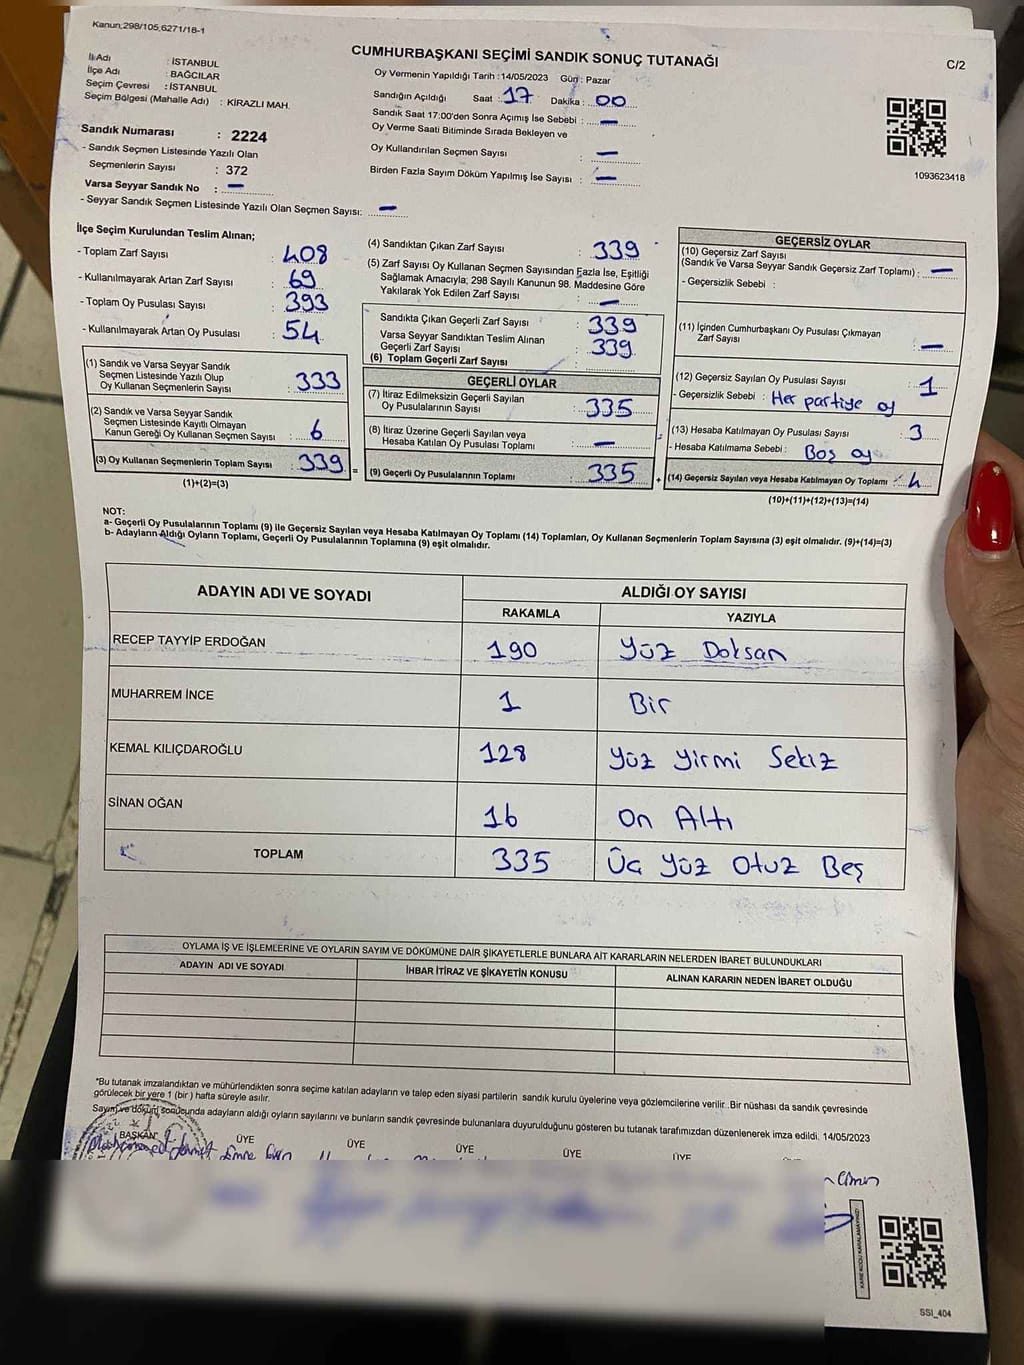 Kanun,298/105,6271/18-1
CUMHURBAŞKANI SEÇİMİ SANDIK SONUÇ TUTANAĞI
C/2
İl Adı : İSTANBUL
İlçe Adı : BAĞCILAR
Seçim Çevresi : İSTANBUL
Seçim Bölgesi (Mahalle Adı) : KİRAZLI MAH.
Sandık Numarası : 2224
- Sandık Seçmen Listesinde Yazılı Olan
Seçmenlerin Sayısı : 372
Varsa Seyyar Sandık No : —
- Seyyar Sandık Seçmen Listesinde Yazılı Olan Seçmen Sayısı: —
Oy Vermenin Yapıldığı Tarih : 14/05/2023 Gün : Pazar
Sandığın Açıldığı Saat : 17 Dakika : 00
Sandık Saat 17:00'den Sonra Açımış İse Sebebi : —
Oy Verme Saati Bitiminde Sırada Bekleyen ve
Oy Kullandırılan Seçmen Sayısı : —
Birden Fazla Sayım Döküm Yapılmış İse Sayısı : —
1093623418
İlçe Seçim Kurulundan Teslim Alınan;
- Toplam Zarf Sayısı : 408
- Kullanılmayarak Artan Zarf Sayısı : 69
- Toplam Oy Pusulası Sayısı : 393
- Kullanılmayarak Artan Oy Pusulası : 54
(1) Sandık ve Varsa Seyyar Sandık
Seçmen Listesinde Yazılı Olup
Oy Kullanan Seçmenlerin Sayısı : 333
(2) Sandık ve Varsa Seyyar Sandık
Seçmen Listesinde Kayıtlı Olmayan
Kanun Gereği Oy Kullanan Seçmen Sayısı : 6
(3) Oy Kullanan Seçmenlerin Toplam Sayısı : 339 =
(1)+(2)=(3)
(4) Sandıktan Çıkan Zarf Sayısı : 339
(5) Zarf Sayısı Oy Kullanan Seçmen Sayısından Fazla İse, Eşitliği
Sağlamak Amacıyla; 298 Sayılı Kanunun 98. Maddesine Göre
Yakılarak Yok Edilen Zarf Sayısı : —
Sandıkta Çıkan Geçerli Zarf Sayısı : 339
Varsa Seyyar Sandıktan Teslim Alınan
Geçerli Zarf Sayısı : 339
(6) Toplam Geçerli Zarf Sayısı :
GEÇERLİ OYLAR
(7) İtiraz Edilmeksizin Geçerli Sayılan
Oy Pusulalarının Sayısı : 335
(8) İtiraz Üzerine Geçerli Sayılan veya
Hesaba Katılan Oy Pusulası Toplamı : —
(9) Geçerli Oy Pusulalarının Toplamı : 335 +
GEÇERSİZ OYLAR
(10) Geçersiz Zarf Sayısı
(Sandık ve Varsa Seyyar Sandık Geçersiz Zarf Toplamı) : —
- Geçersizlik Sebebi :
(11) İçinden Cumhurbaşkanı Oy Pusulası Çıkmayan
Zarf Sayısı : —
(12) Geçersiz Sayılan Oy Pusulası Sayısı : 1
- Geçersizlik Sebebi : Her partiye oy
(13) Hesaba Katılmayan Oy Pusulası Sayısı : 3
- Hesaba Katılmama Sebebi : Boş oy
(14) Geçersiz Sayılan veya Hesaba Katılmayan Oy Toplamı : 4
(10)+(11)+(12)+(13)=(14)
NOT:
a- Geçerli Oy Pusulalarının Toplamı (9) ile Geçersiz Sayılan veya Hesaba Katılmayan Oy Toplamı (14) Toplamları, Oy Kullanan Seçmenlerin Toplam Sayısına (3) eşit olmalıdır. (9)+(14)=(3)
b- Adayların Aldığı Oyların Toplamı, Geçerli Oy Pusulalarının Toplamına (9) eşit olmalıdır.
ADAYIN ADI VE SOYADI
ALDIĞI OY SAYISI
RAKAMLA YAZIYLA
RECEP TAYYİP ERDOĞAN 190 Yüz Doksan
MUHARREM İNCE 1 Bir
KEMAL KILIÇDAROĞLU 128 Yüz Yirmi Sekiz
SİNAN OĞAN 16 On Altı
TOPLAM 335 Üç Yüz Otuz Beş
OYLAMA İŞ VE İŞLEMLERİNE VE OYLARIN SAYIM VE DÖKÜMÜNE DAİR ŞİKAYETLERLE BUNLARA AİT KARARLARIN NELERDEN İBARET BULUNDUKLARI
ADAYIN ADI VE SOYADI İHBAR İTİRAZ VE ŞİKAYETİN KONUSU ALINAN KARARIN NEDEN İBARET OLDUĞU
*Bu tutanak imzalandıktan ve mühürlendikten sonra seçime katılan adayların ve talep eden siyasi partilerin sandık kurulu üyelerine veya gözlemcilerine verilir. Bir nüshası da sandık çevresinde
görülecek bir yere 1 (bir ) hafta süreyle asılır.
Sayım ve döküm sonucunda adayların aldığı oyların sayılarını ve bunların sandık çevresinde bulunanlara duyurulduğunu gösteren bu tutanak tarafımızdan düzenlenerek imza edildi. 14/05/2023
BAŞKAN ÜYE ÜYE ÜYE ÜYE ÜYE
KARE KODU KARALAMAYINIZ!
SSI_404